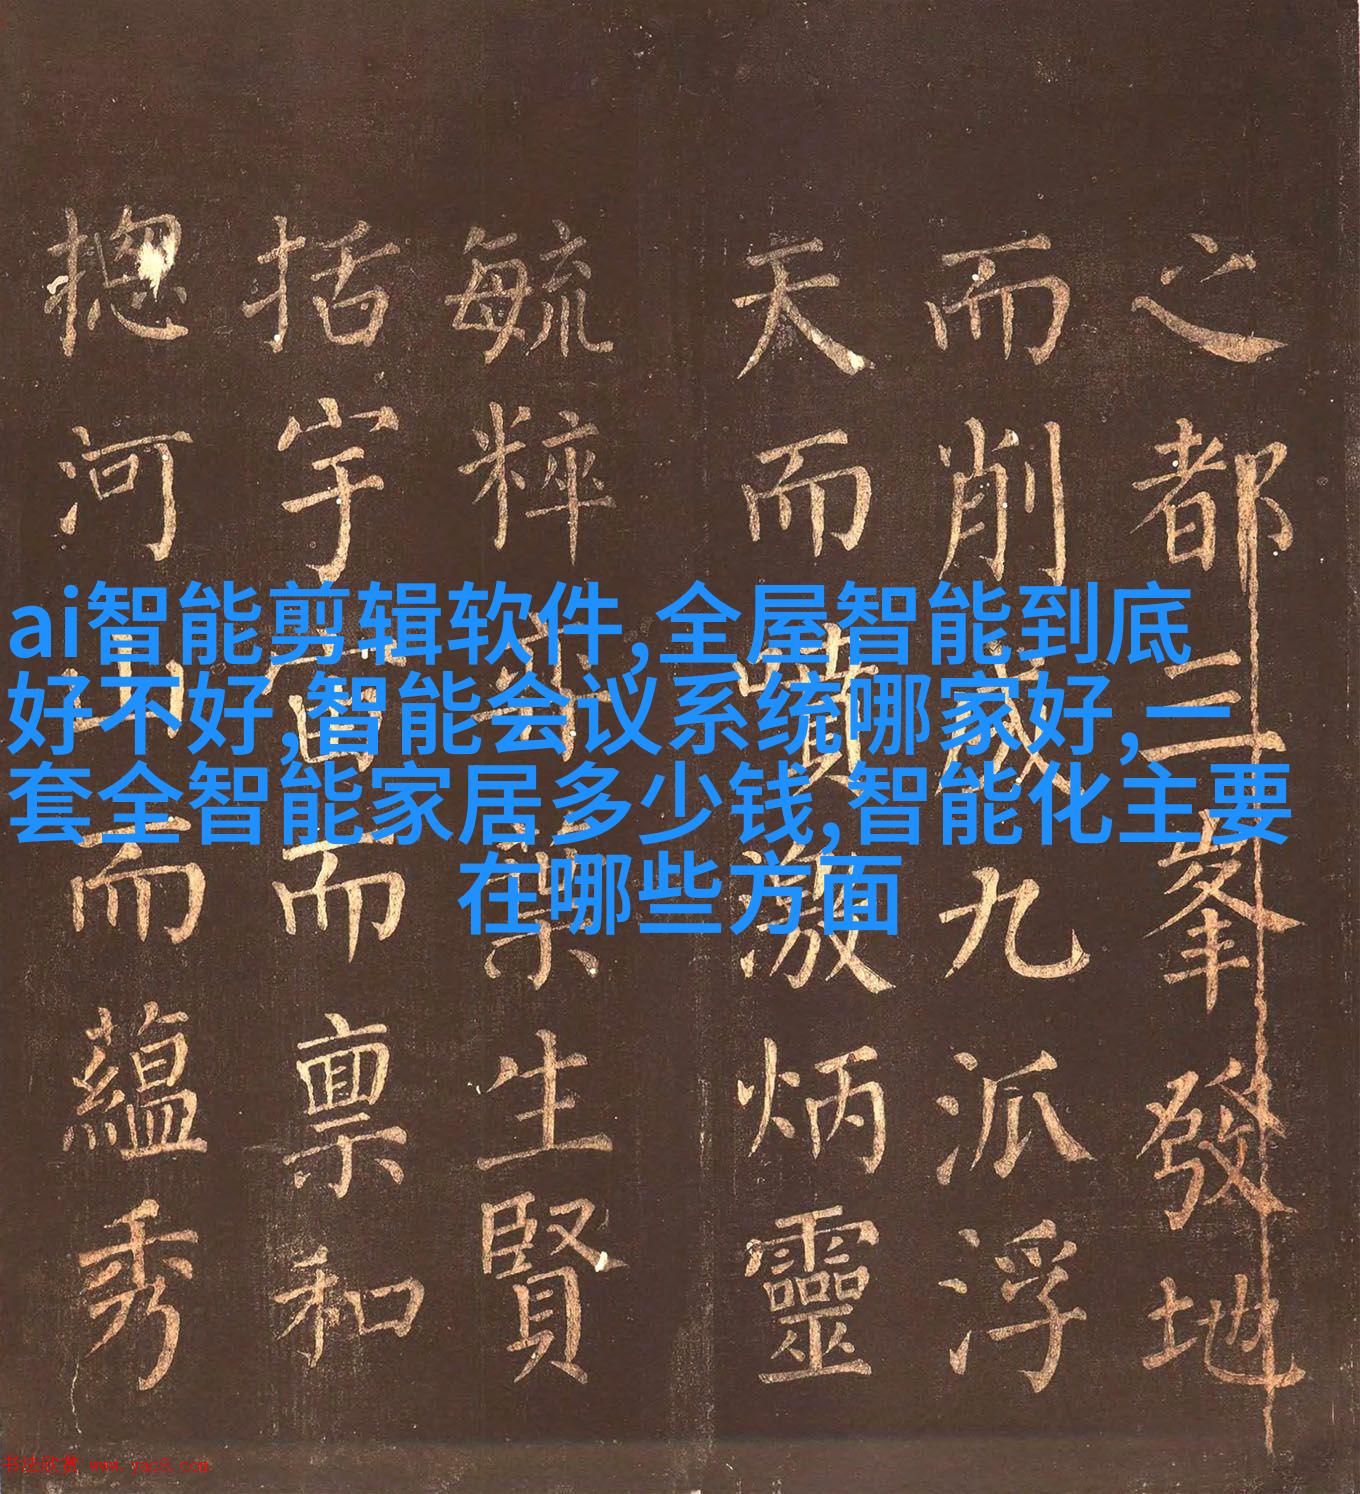 ai智能剪辑软件,全屋智能到底
好不好,智能会议系统哪家好,一
套全智能家居多少钱,智能化主要
在哪些方面
之都三峯發地
而削成九派浮
天而噴激炳靈
毓粹生賢
括宇宙而禀和
揔河山而蘊秀
书法欣赏 www.yac8.com